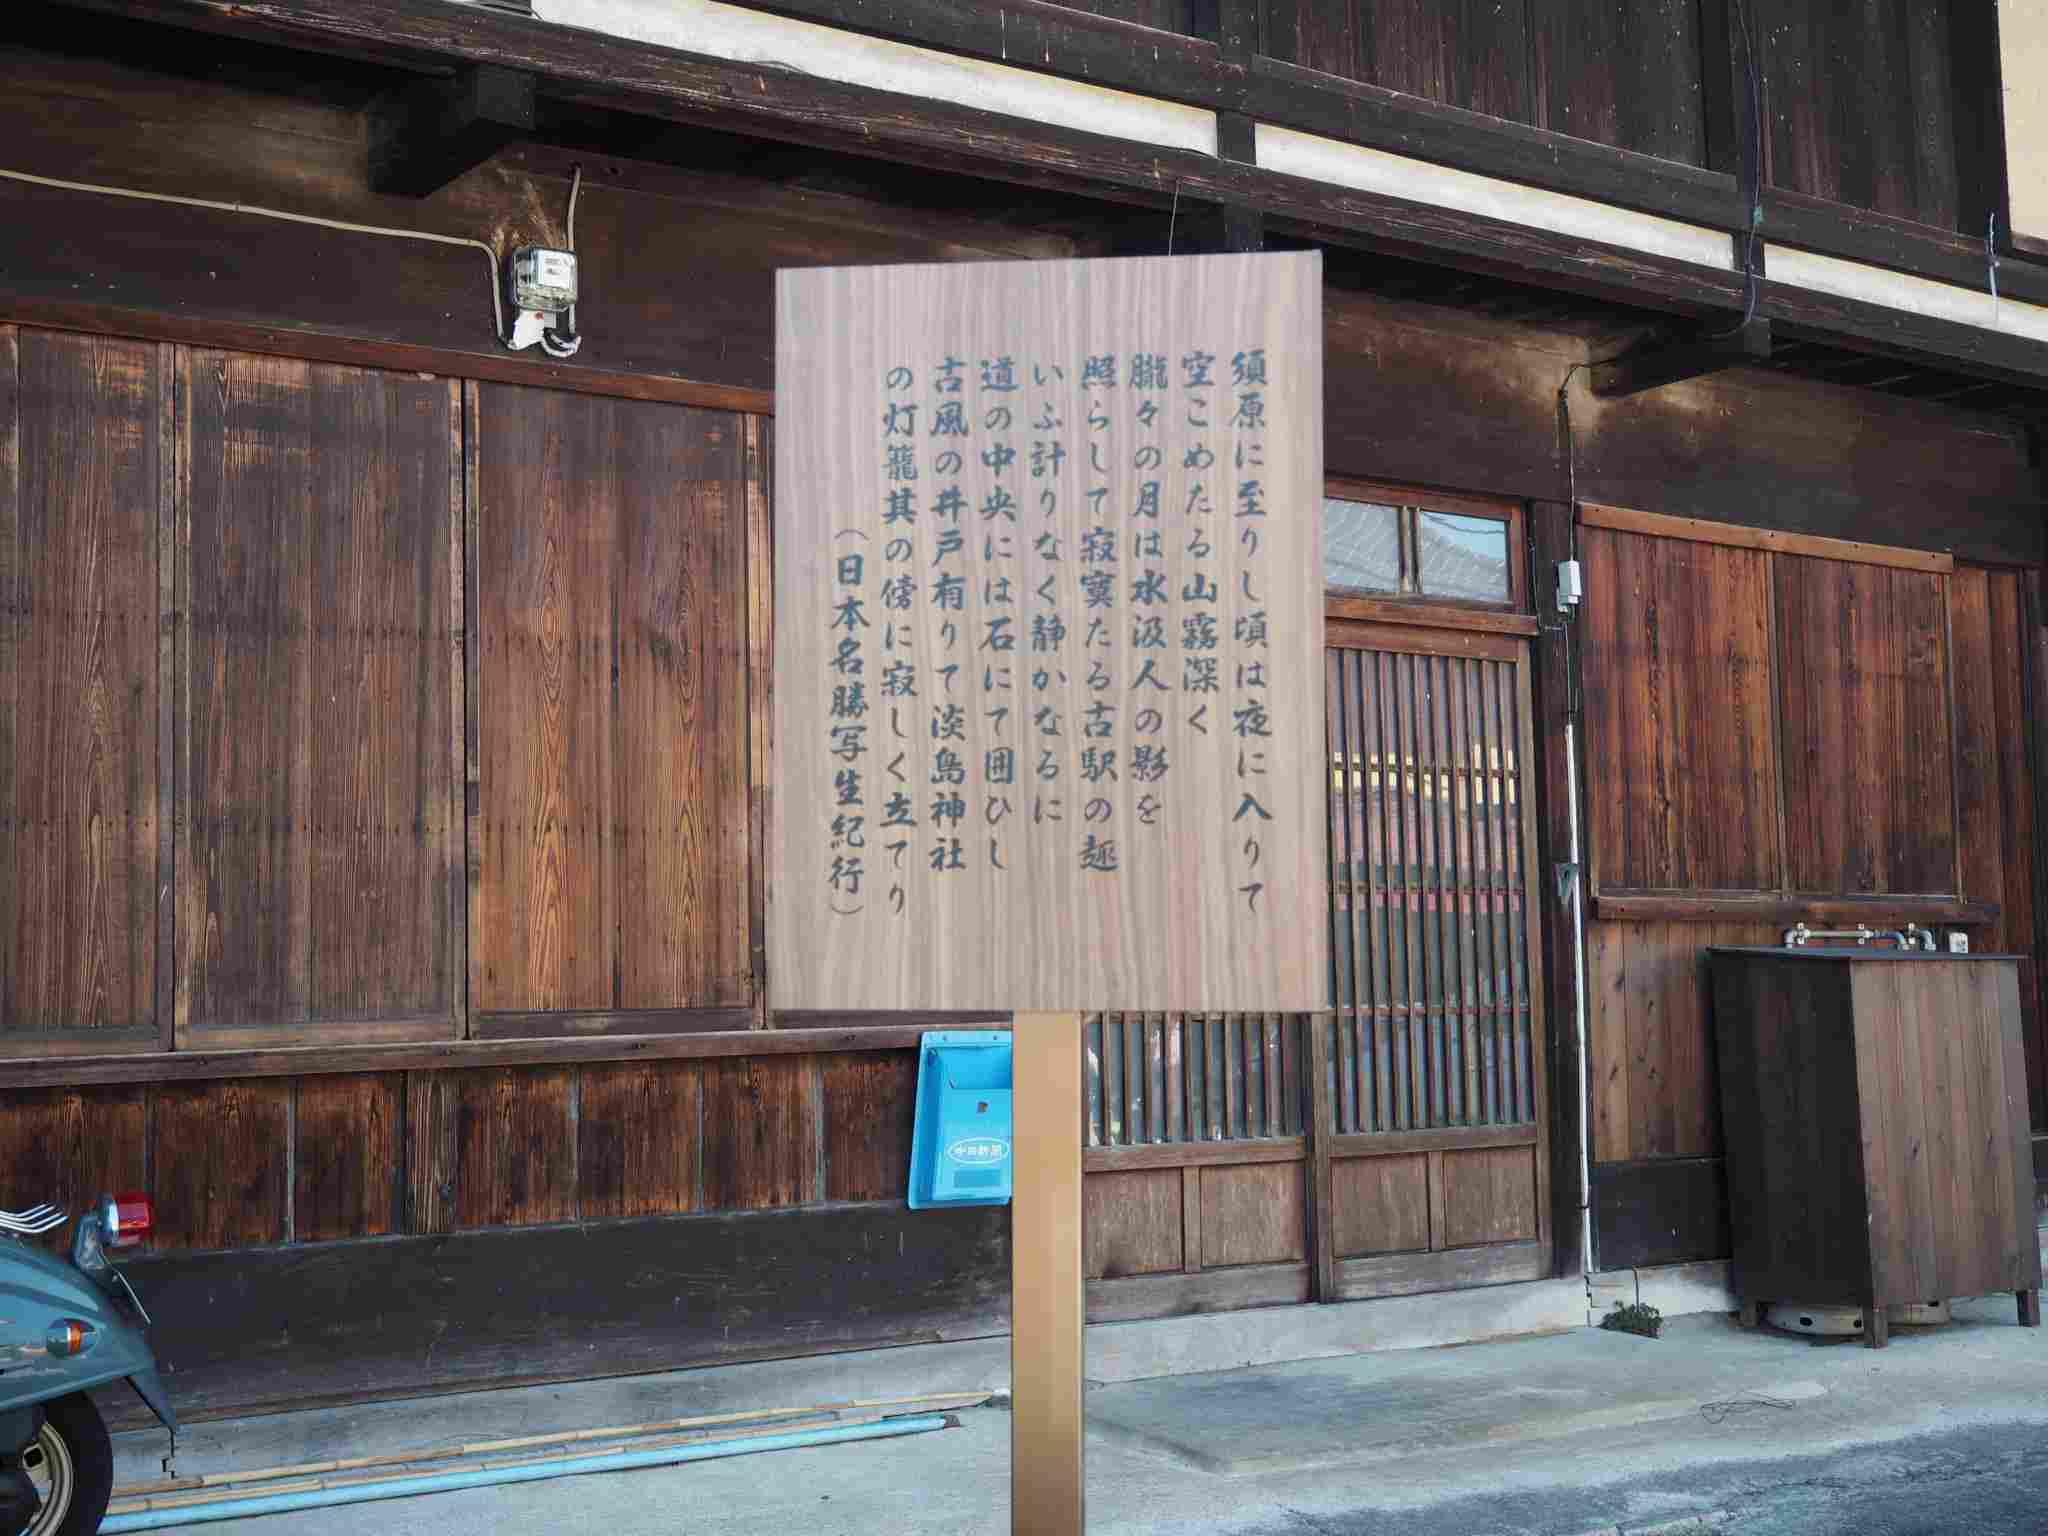 須原に至りし頃は夜に入りて
空こめたる山霧深く
朧々の月は水汲人の影を
照らして寂寞たる古駅の趣
いふ計りなく静かなるに
道の中央には石にて囲ひし
古風の井戸有りて淡島神社
の灯籠其の傍に寂しく立てり
（日本名勝写生紀行）
中日新聞